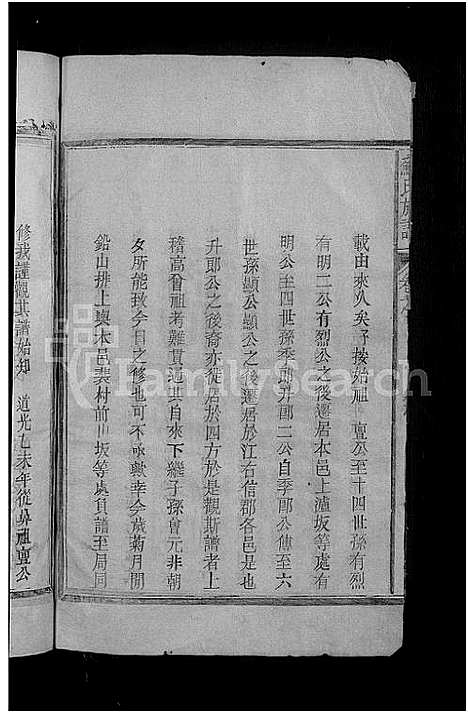 載由來久矣予接始祖 亶公至十四世孫有烈
有明二公有烈公之後遷居本邑上瀘坂等處有
明公至四世孫季郎升郎二公自季郎公傳至六
世孫顯公顯公之後遷居於江右信郡各邑是也
升郎公之後裔亦徙居於四方於是觀斯譜者上
稽高曾祖考難貫通其自來下繼子孫曾元非朝
夕所能致今日之修也可不哉興幸今歲菊月閒
鉛山排上與本邑裴村前 坂等處負譜至局同
修我謹觀其譜始知 道光乙未年從鼻祖亶公
氏族譜
FamilySearch